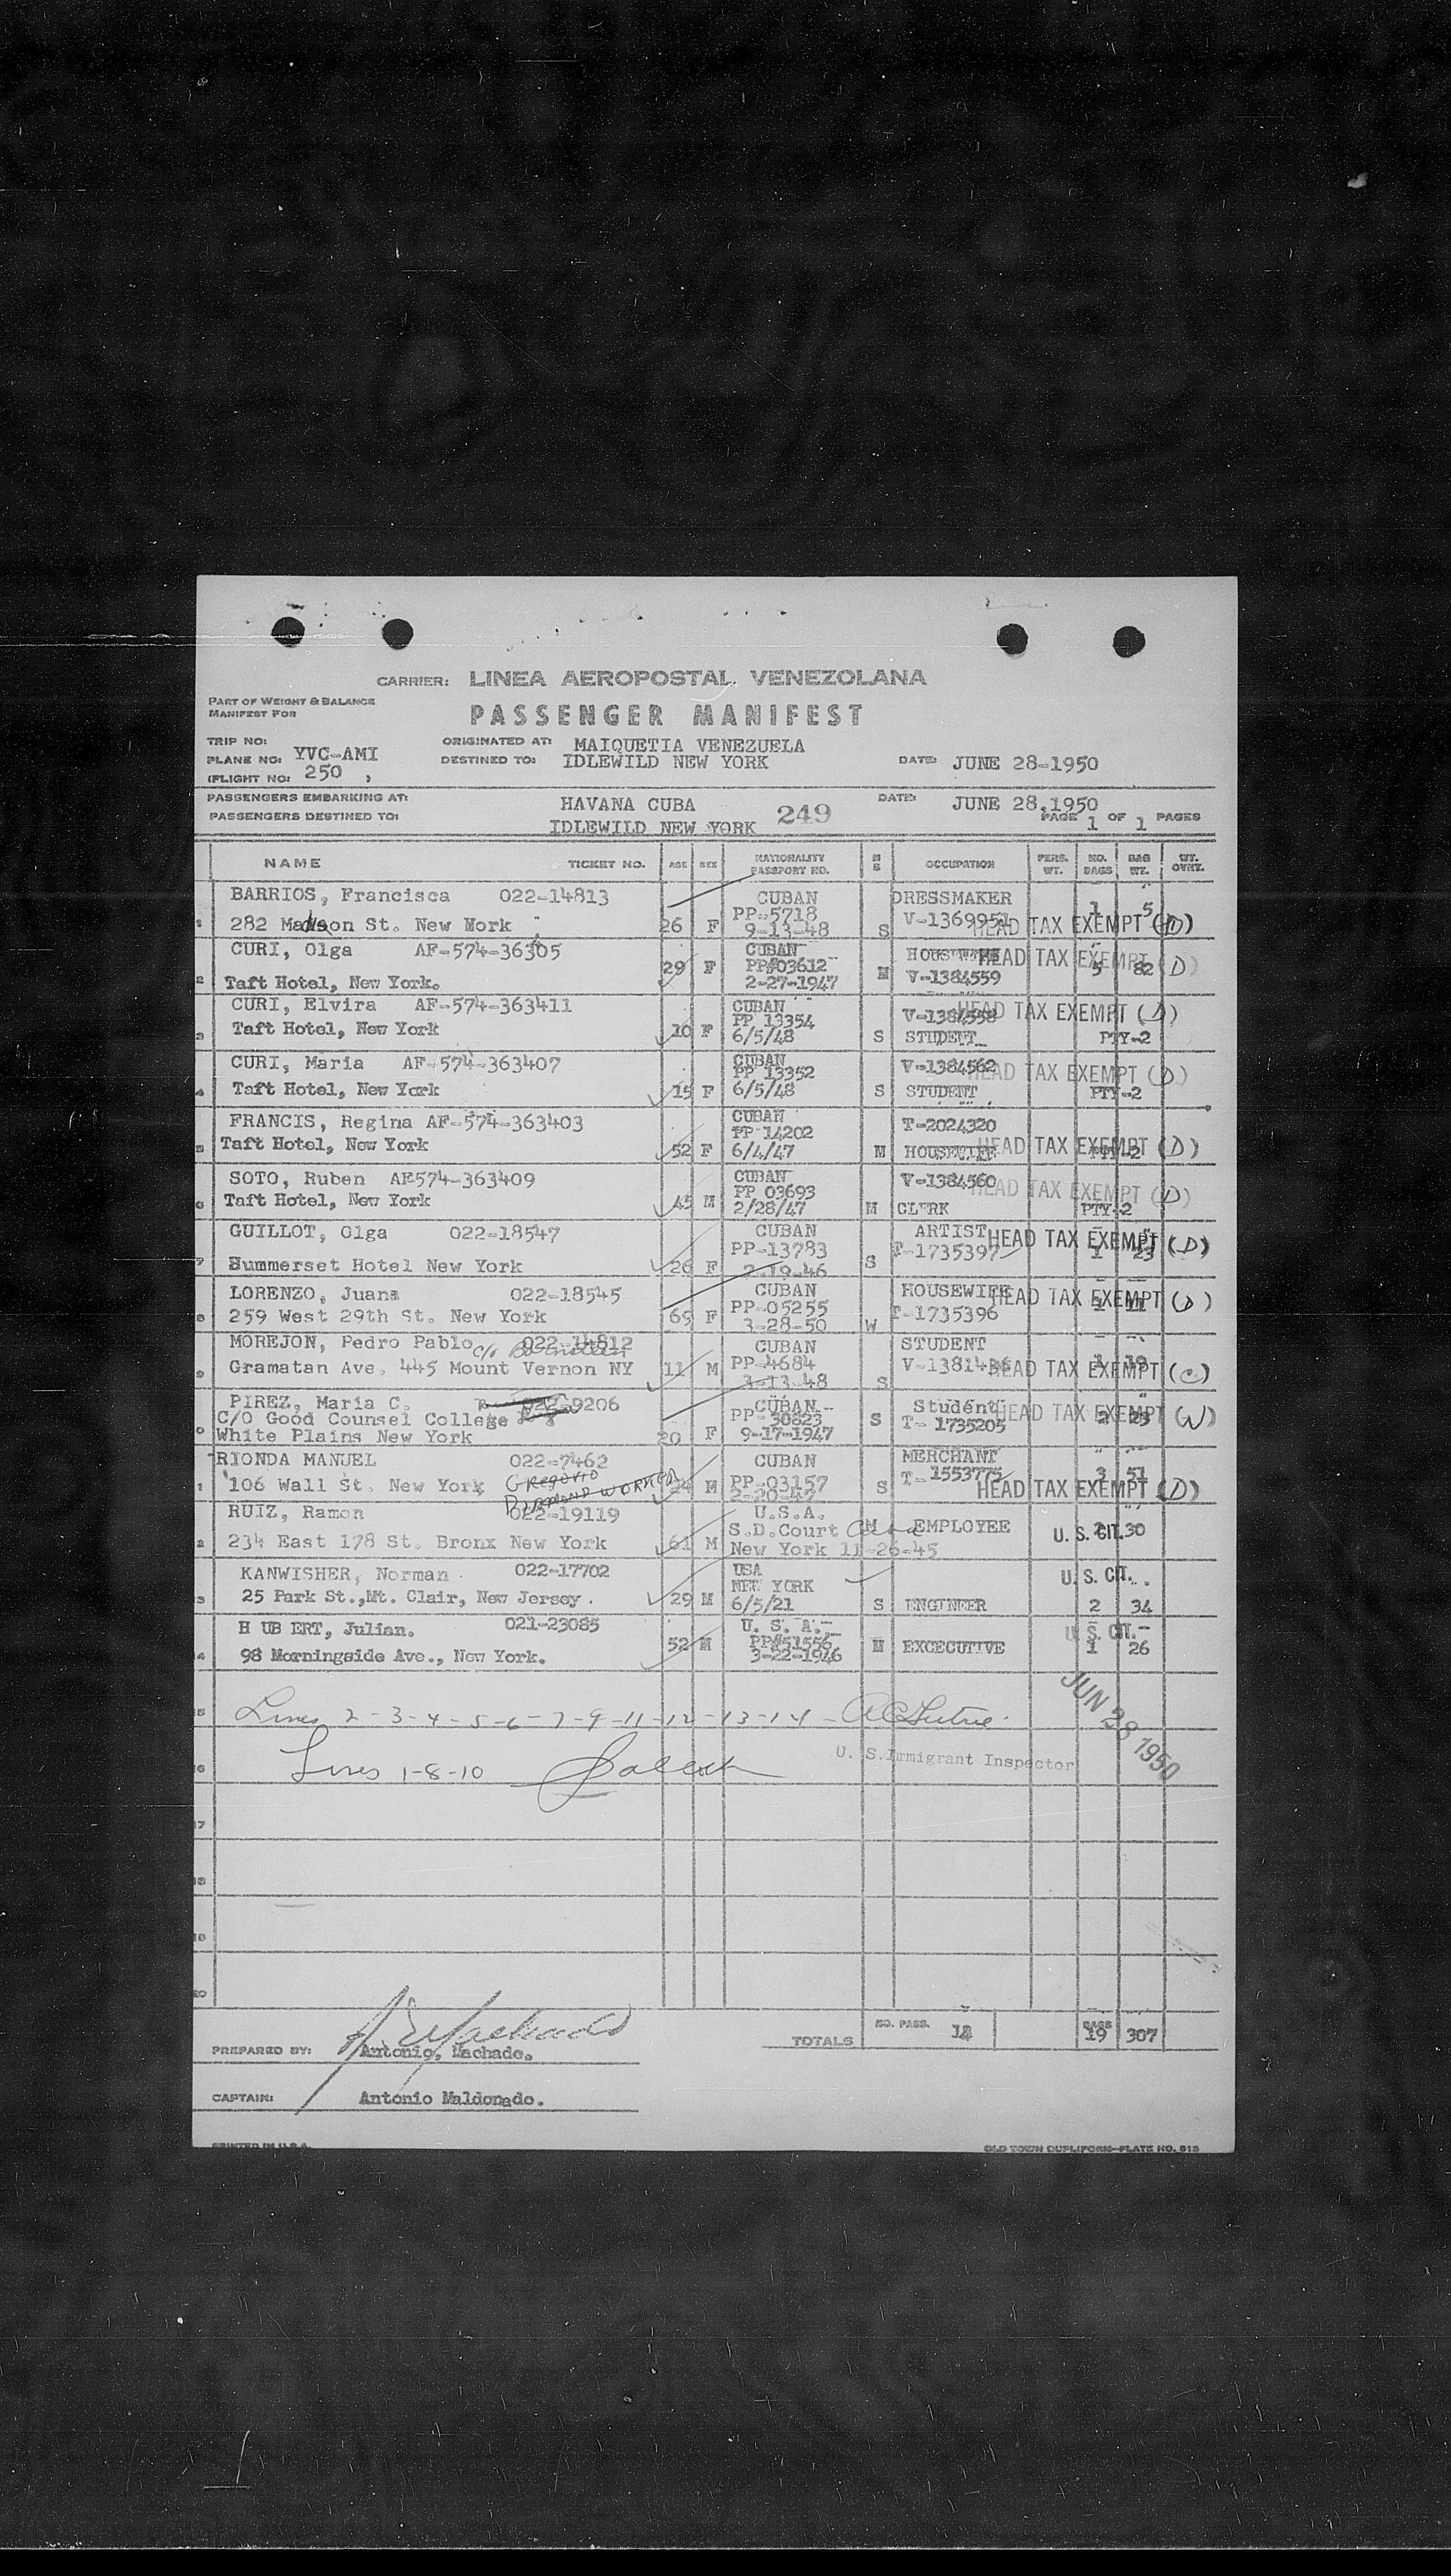 CARRIER: LINEA AEROPOSTAL VENEZOLANA
PART OF WEIGHT & BALANCE
MANIFEST FOR
PASSENGER MANIFEST
TRIP NO:
PLANE NO: YVC-AMI
(FLIGHT NO: 250 )
ORIGINATED AT: MAIQUETIA VENEZUELA
DESTINED TO: IDLEWILD NEW YORK
DATE: JUNE 28-1950
PASSENGERS EMBARKING AT: HAVANA CUBA
DATE: JUNE 28,1950
PASSENGERS DESTINED TO: IDLEWILD NEW YORK
249
PAGE 1 OF 1 PAGES
NAME TICKET NO. AGE SEX NATIONALITY PASSPORT NO. M S OCCUPATION PERS. WT. NO. BAGS BAG WT. WT. OVHT.
BARRIOS, Francisca 022-14813 CUBAN DRESSMAKER
PP-5718 V-1369951 1 5
1 282 Madison St. New York 26 F 9-13-48 S HEAD TAX EXEMPT (D)
CURI, Olga AF-574-36305 CUBAN HOUSEWIFE HEAD TAX EXEMPT (D)
29 F PP#03612 M 5 82
2 Taft Hotel, New York. 2-27-1947 V-1384559
CURI, Elvira AF-574-363411 CUBAN V-1384558 HEAD TAX EXEMPT (D)
PP 13354
3 Taft Hotel, New York 10 F 6/5/48 S STUDENT PTY-2
CURI, Maria AF-574-363407 CUBAN V-1384562 HEAD TAX EXEMPT (D)
PP 13352
4 Taft Hotel, New York 15 F 6/5/48 S STUDENT PTY-2
FRANCIS, Regina AF-574-363403 CUBAN T-2024320
PP 14202
5 Taft Hotel, New York 52 F 6/4/47 M HOUSEWIFE HEAD TAX EXEMPT (D) PTY-2
SOTO, Ruben AF574-363409 CUBAN V-1384560 HEAD TAX EXEMPT (D)
PP 03693
6 Taft Hotel, New York 45 M 2/28/47 M CLERK PTY-2
GUILLOT, Olga 022-18547 CUBAN ARTIST HEAD TAX EXEMPT (D)
PP-13783 T-1735397 1 23
7 Summerset Hotel New York 26 F 2-19-46 S
LORENZO, Juana 022-18545 CUBAN HOUSEWIFE HEAD TAX EXEMPT (D)
PP-05255 T-1735396
8 259 West 29th St. New York 69 F 3-28-50 W
MOREJON, Pedro Pablo 022-14812 CUBAN STUDENT
c/o
PP-4684 V-1381436 1 19
9 Gramatan Ave. 445 Mount Vernon NY 11 M 3-13-48 S HEAD TAX EXEMPT (C)
PIREZ, Maria C. 022-9206 CUBAN Student HEAD TAX EXEMPT (W)
C/O Good Counsel College PP-30823 S T-1735205 2 23
White Plains New York 20 F 9-17-1947
RIONDA MANUEL 022-7462 CUBAN MERCHANT
GREGORIO
1 106 Wall St. New York 24 M PP-03157 S T-1553775 3 51
DIAMOND WORKER 2-20-47 HEAD TAX EXEMPT (D)
RUIZ, Ramon 022-19119 U.S.A.
S.D.Court M EMPLOYEE U. S. CIT. 30
2 234 East 178 St. Bronx New York 61 M New York 11-26-45
KANWISHER, Norman 022-17702 USA U. S. CIT.
NEW YORK
3 25 Park St.,Mt. Clair, New Jersey. 29 M 6/5/21 S ENGINEER 2 34
H UB ERT, Julian. 021-23085 U. S. A. U. S. CIT.
52 M PP#51556 M EXCECUTIVE 1 26
4 98 Morningside Ave., New York. 3-22-1946
JUN 28 1950
Lines 2-3-4-5-6-7-9-11-12-13-14-
U. S. Immigrant Inspector
Lines 1-8-10
17
18
19
20
TOTALS NO. PASS. BAGS 19 307
PREPARED BY: Antonio, Machado.
CAPTAIN: Antonio Maldonado.
PRINTED IN U.S.A.
OLD TOWN DUPLIFORM-PLATE NO. 913